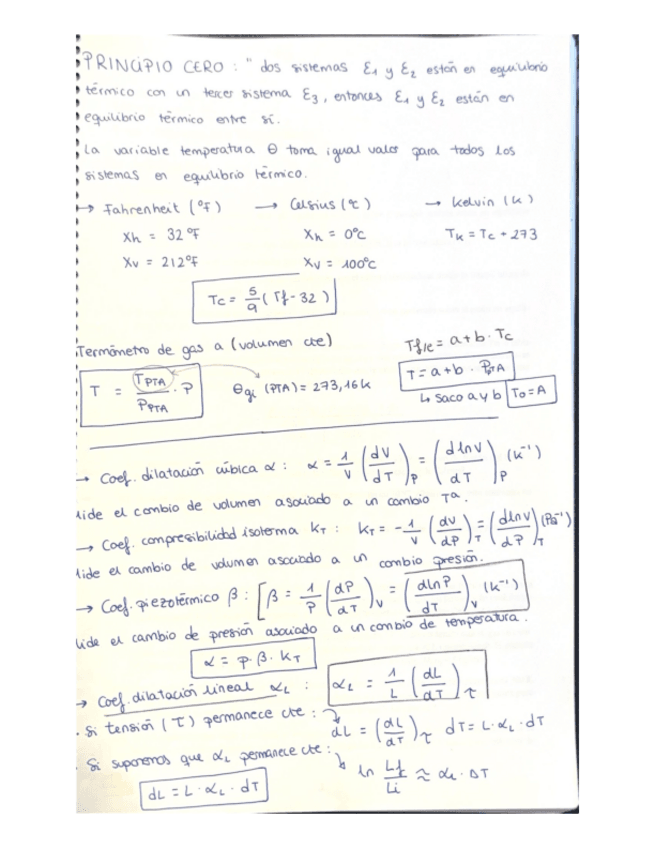 PRINCIPIO CERO : " dos sistemas Ɛ1 y Ɛ2 están en equilibrio
térmico con un tercer sistema Ɛ3, entonces Ɛ1 y Ɛ2 están en
equilibrio térmico entre sí.
La variable temperatura Θ toma igual valor para todos los
sistemas en equilibrio térmico.
→ Fahrenheit (°F) → Celsius (°C) → Kelvin (K)
Xh = 32°F Xh = 0°C TK = Tc + 273
Xv = 212°F Xv = 100°C
Tc = 5/9 (Tf - 32)
Termómetro de gas a (volumen cte) Tf/c = a + b · Tc
T = TPTA/PPTA · P Θgi (PTA) = 273,16 K T = a + b · PPTA
↳ saco a y b T0 = A
→ Coef. dilatación cúbica α : α = 1/V (dV/dT)P = (d lnV/dT)P (K⁻¹)
ide el cambio de volumen asociado a un cambio Tª.
→ Coef. compresibilidad isoterma KT : KT = - 1/V (dV/dP)T = (dlnV/dP)T (Pa⁻¹)
ide el cambio de volumen asociado a un cambio presión.
→ Coef. piezotérmico β : [β = 1/P (dP/dT)V = (dlnP/dT)V (K⁻¹)
ide el cambio de presión asociado a un cambio de temperatura.
α = P · β · KT
→ Coef. dilatación lineal αL : αL = 1/L (dL/dT)τ
. Si tensión (τ) permanece cte : ↳ dL = (dL/dT)τ dT = L · αL · dT
. Si suponemos que αL permanece cte : ↳ ln Lf/Li ≈ αL · ΔT
dL = L · αL · dT